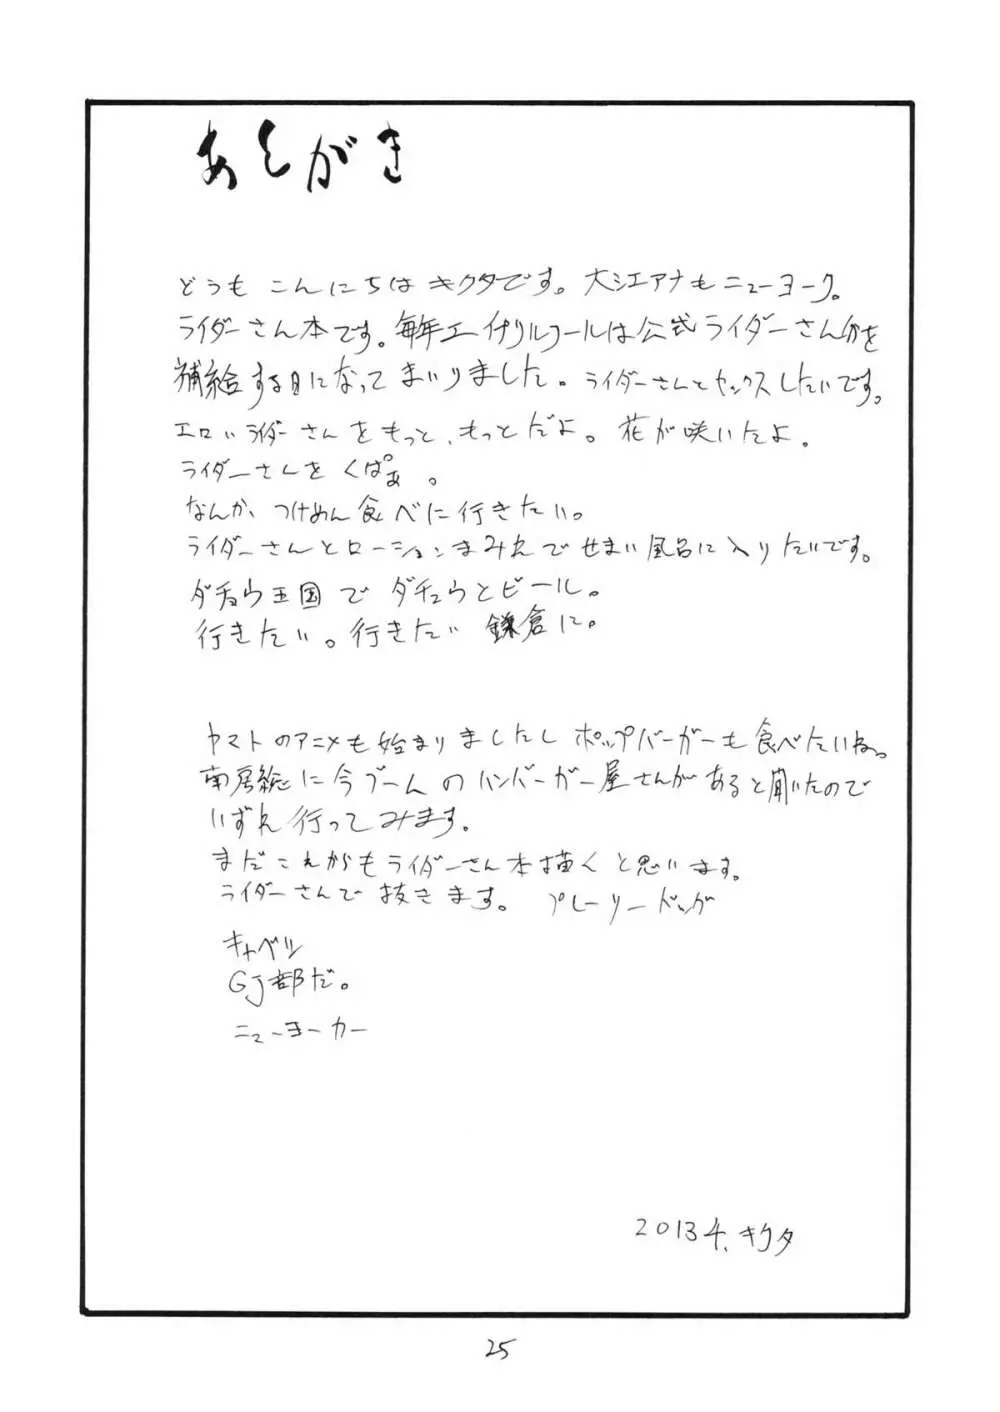 あとがき
どうも こんにちは キクタです。大シエアナもニューヨーク。
ライダーさん本です。毎年エイプリルフールは公式ライダーさん分を
補給する日になってまいりました。ライダーさんとセックスしたいです。
エロいライダーさんをもっと、もっとだよ。花が咲いたよ。
ライダーさんをくぱぁ。
なんか、つけめん食べに行きたい。
ライダーさんとローションまみれでせまい風呂に入りたいです。
ダチョウ王国でダチョウとビール。
行きたい。行きたい 鎌倉に。
ヤマトのアニメも始まりましたし ポップバーガーも食べたいね。
南房総に今ブームのハンバーガー屋さんがあると聞いたので
いずれ行ってみます。
まだこれからもライダーさん本描くと思います。
ライダーさんで抜きます。プレーリードッグ
キャベツ
GJ部だ。
ニューヨーカー
2013 4. キクタ
25